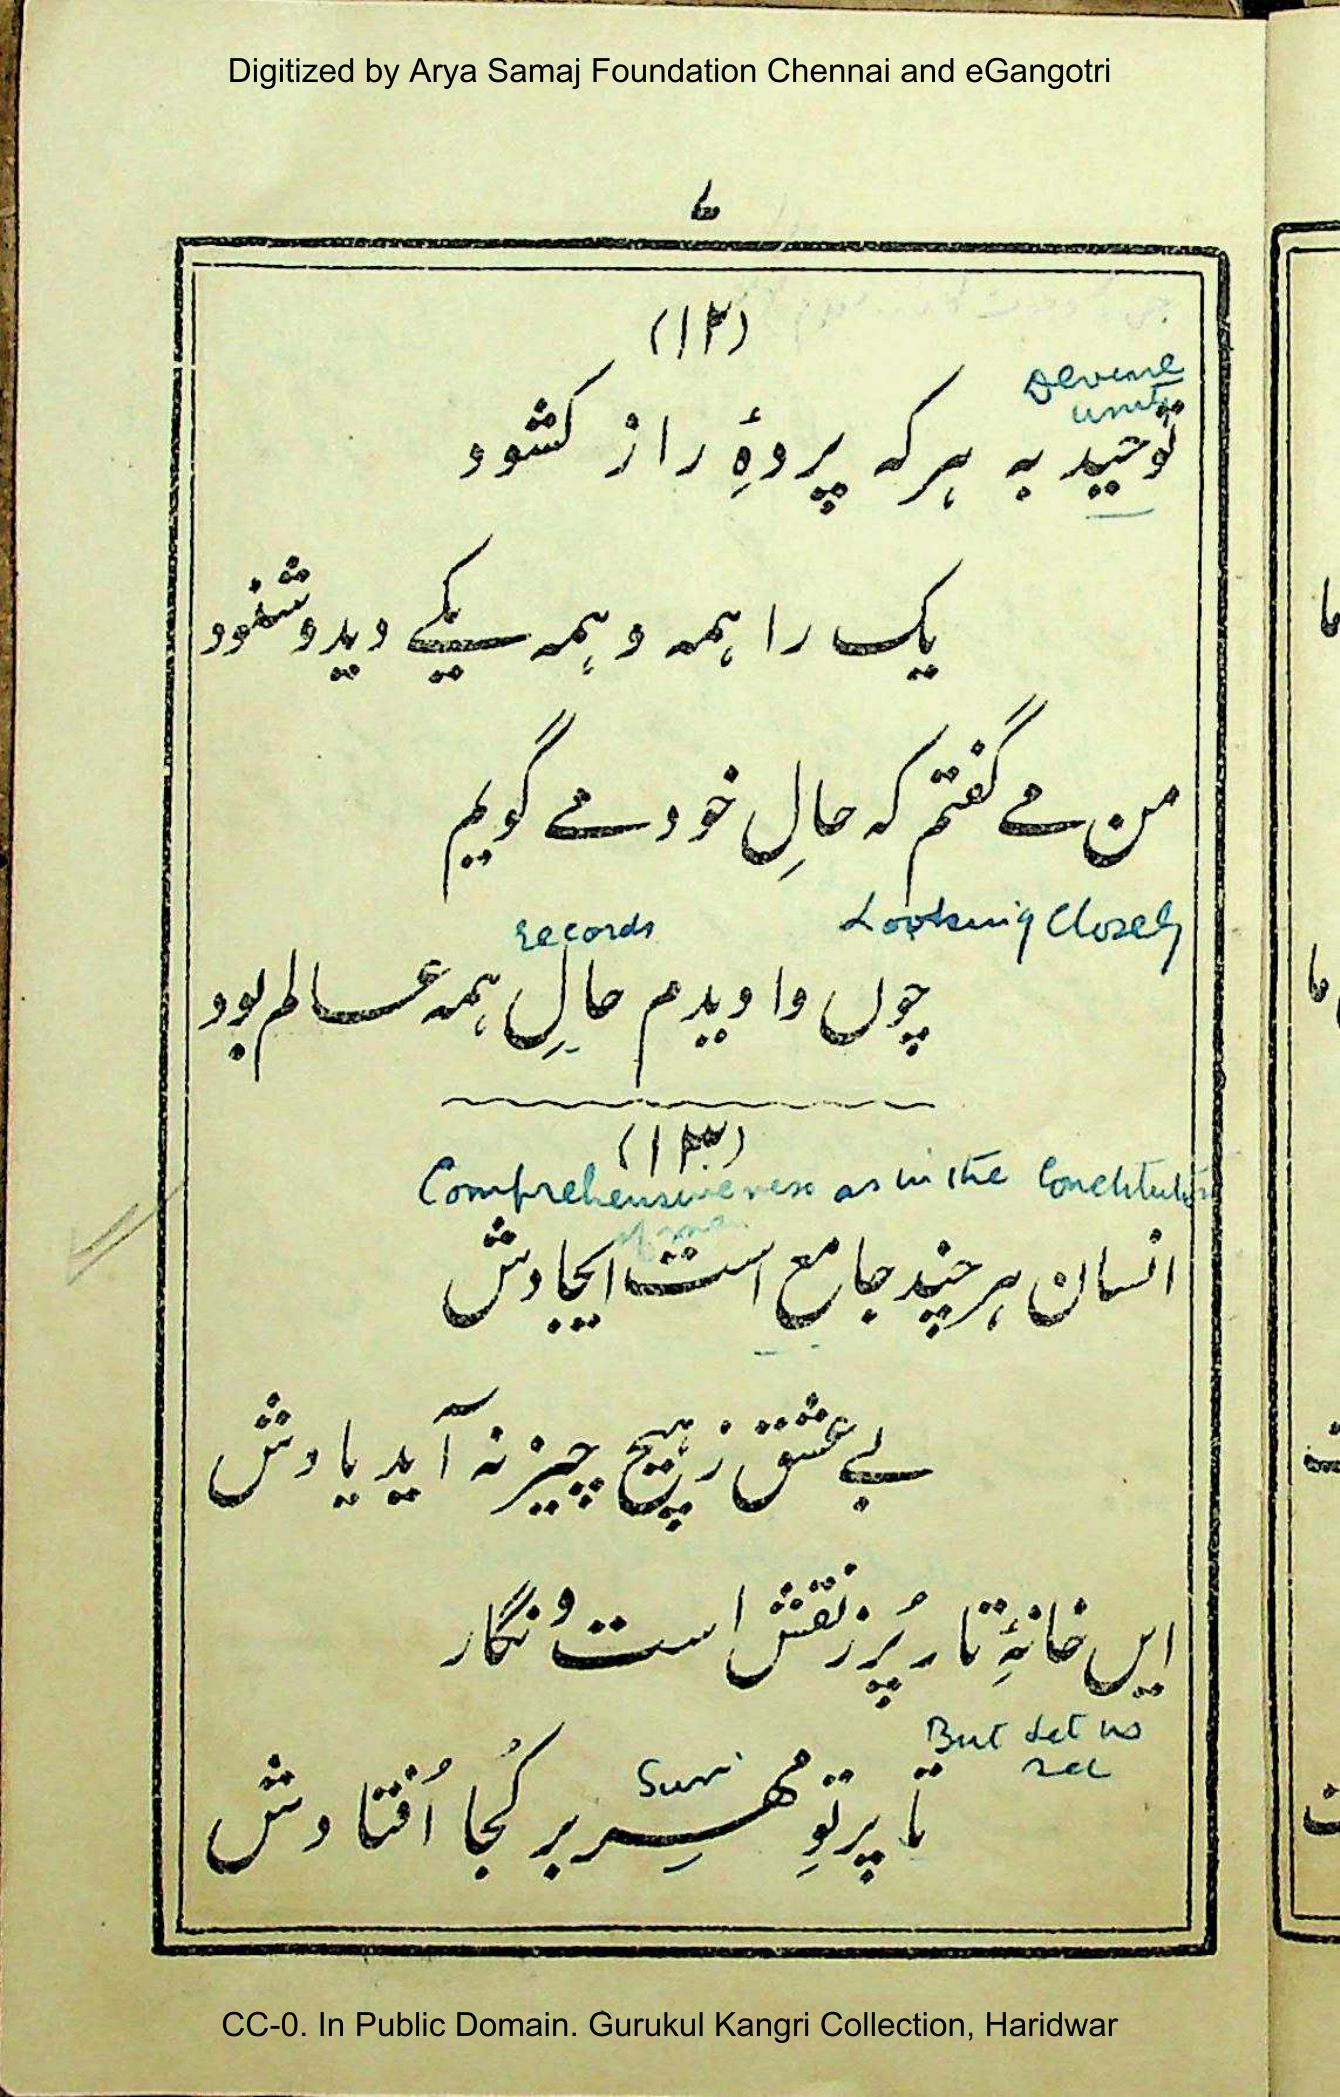 Digitized by Arya Samaj Foundation Chennai and eGangotri
(۱۲)
Devine
unity
توحید بہ ہرکہ پردۂِ راز کشود
یک را ہمہ و ہمہ یکے دید و شنود
من مے گفتم کہ حالِ خود مے گویم
records Looking Closely
چوں وا دیدم حالِ ہمہ عالم بود
(۱۳)
Comprehensiveness as in the Constitution
of man
انسان ہر چند جامع است ایجادش
بے عشق ز ہیچ چیز نہ آید یادش
ایں خانۂِ تار پُر ز نقش است و نگار
But Let us
see
Sun
تا پرتوِ مہر بر کُجا اُفتادش
CC-0. In Public Domain. Gurukul Kangri Collection, Haridwar